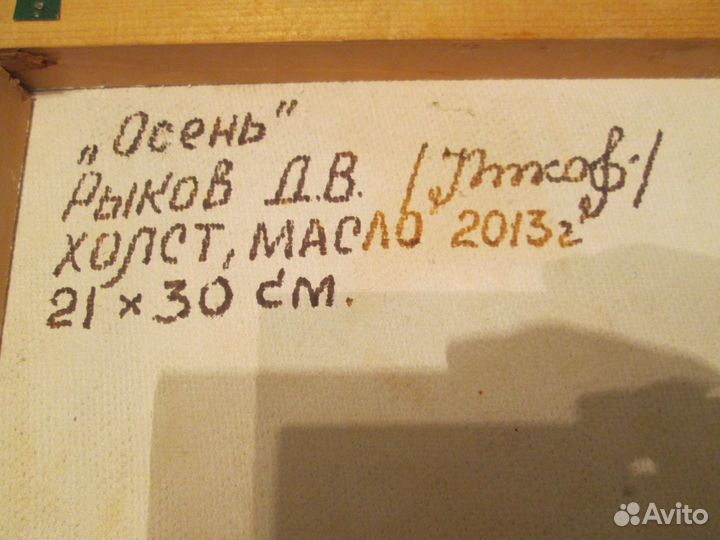 „Осень"
Рыков Д.В.
ХОЛСТ, МАСЛО 2013г
21 × 30 см.
Avito